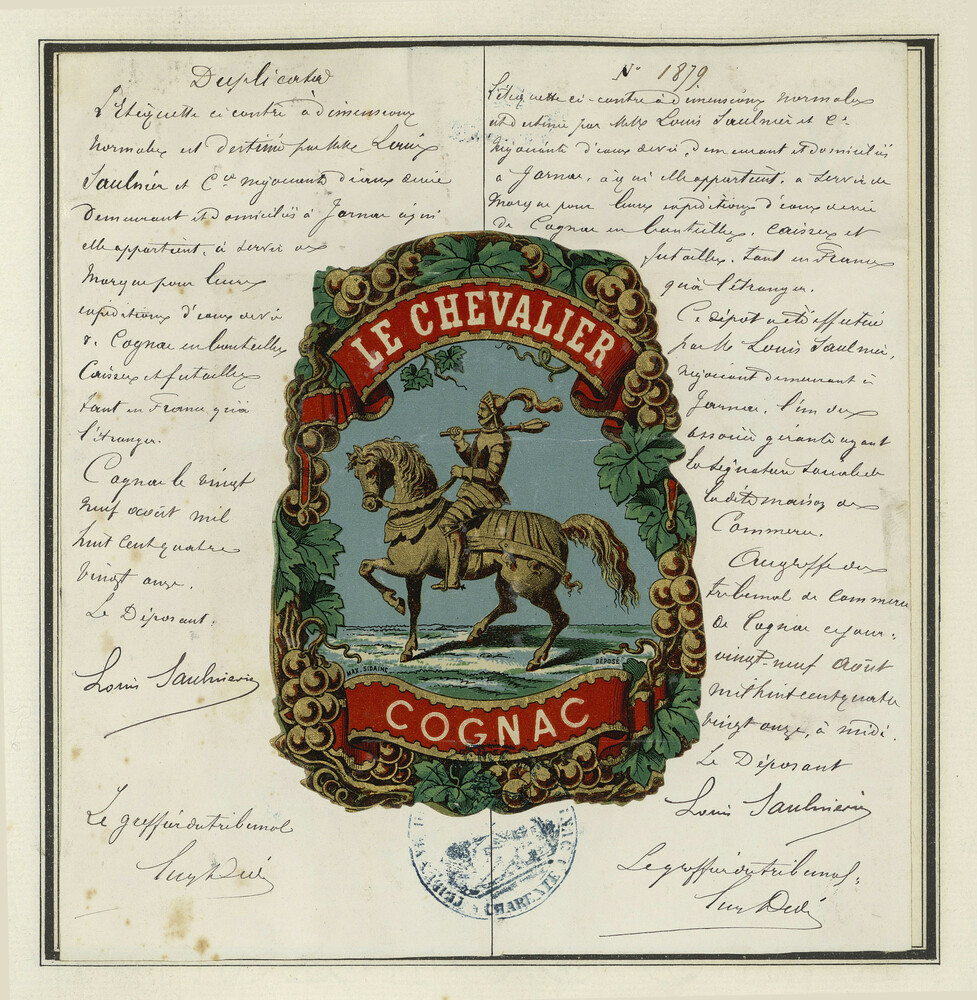 Duplicata
L'Etiquette ci contre à dimensions
normales est destinée par MMrs Louis
Saulnier et Cie négociants d'eaux de vie
Demeurant et domiciliés à Jarnac à qui
elle appartient, à servir de
Marque pour leurs
expéditions d'eaux de vie
de Cognac en bouteilles
Caisses et futailles
tant en France qu'à
l'étranger.
Cognac le vingt
neuf août mil
huit cent quatre
vingt onze.
Le Déposant.
Louis Saulnier
Le greffier du tribunal
No 1879
L'étiquette ci-contre à dimensions normales
est destinée par MMrs Louis Saulnier et Cie
négociants d'eaux de vie, demeurant et domiciliés
à Jarnac, à qui elle appartient, à servir de
Marque pour leurs expéditions d'eaux de vie
de Cognac en bouteilles, caisses et
futailles, tant en France
qu'à l'étranger.
Ce dépôt a été effectué
par Mr Louis Saulnier,
négociant demeurant à
Jarnac, l'un des
associés gérants ayant
la signature sociale de
la dite maison de
Commerce.
Au greffe du
tribunal de commerce
de Cognac ce jour,
vingt-neuf Août
mil huit cent quatre
vingt onze, à midi.
Le Déposant
Louis Saulnier
Le greffier du tribunal,
LE CHEVALIER
MAX. SIDAINE
DÉPOSÉ
COGNAC
CHARENTE